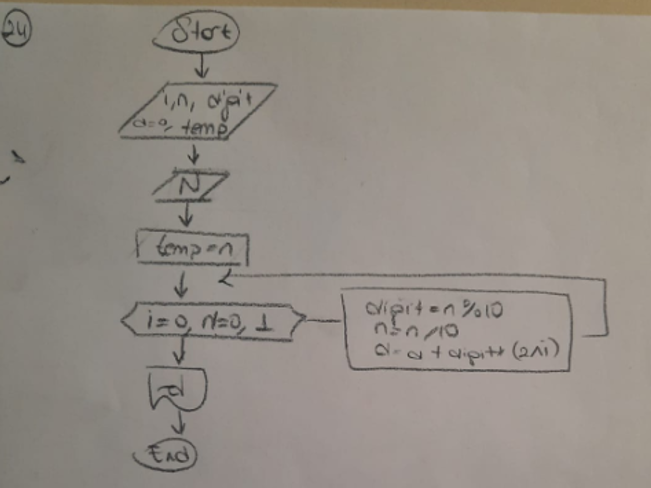 24
Start
i, n, digit
d=0, temp
N
temp=n
i=0, n!=0, 1
digit=n%10
n=n/10
d=d+digit*(2^i)
d
End